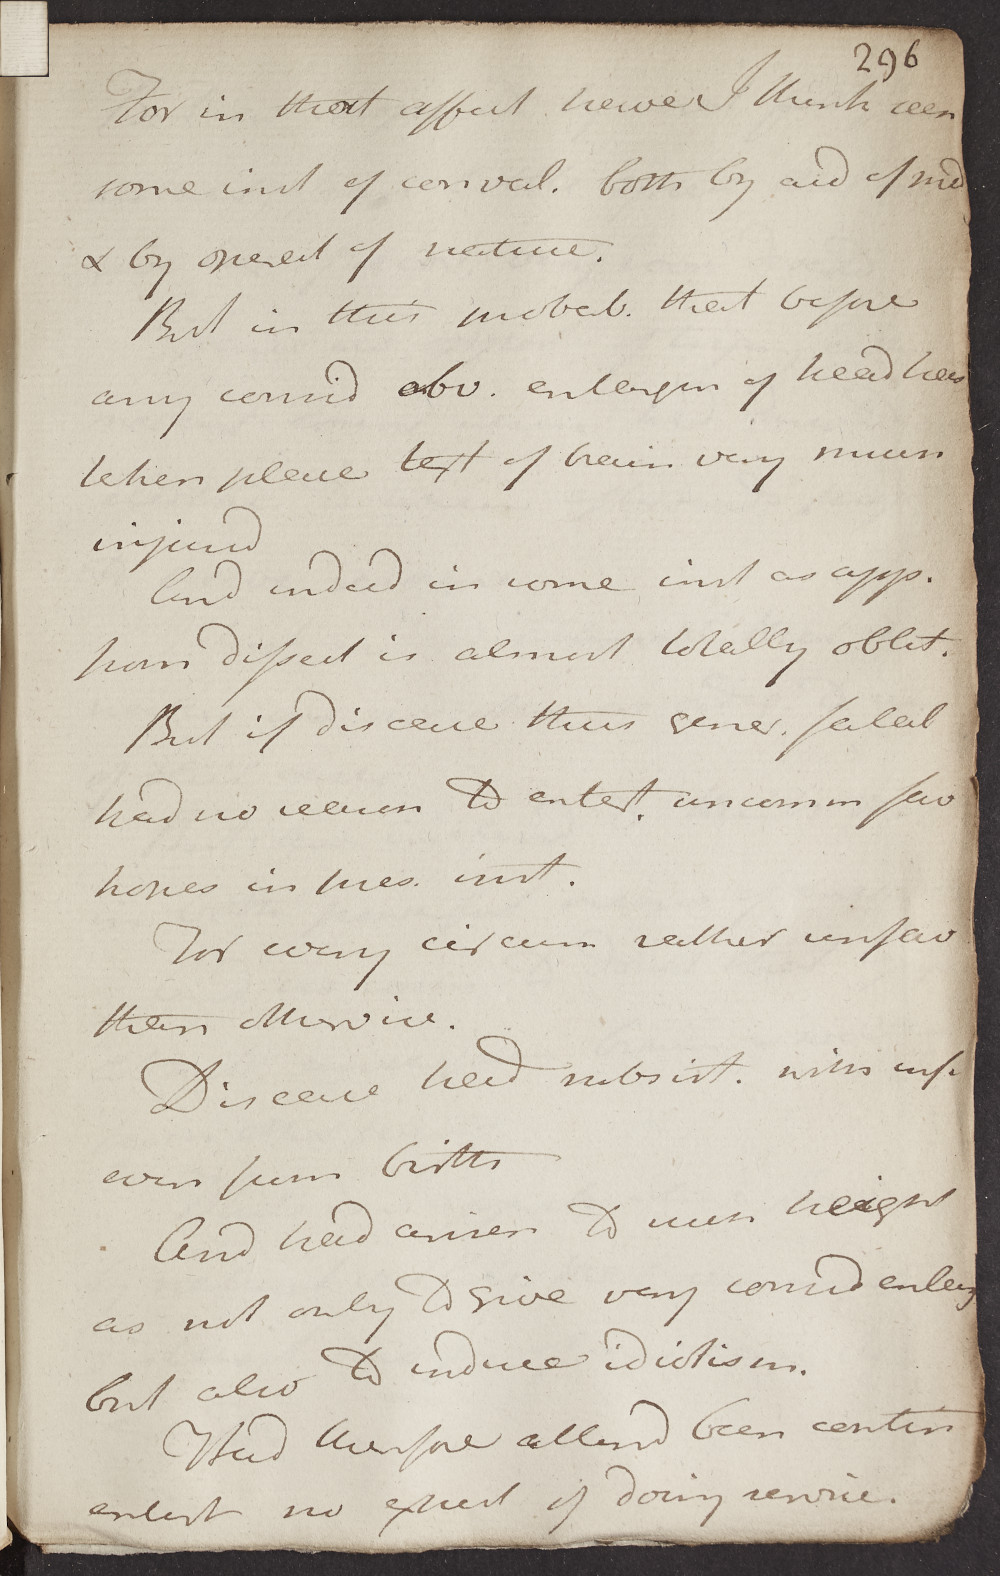 296
For in that affect howev I think seen
some inst of conval. both by aid of med
& by operat of nature.
But in this probab. that before
any consid obv. enlargm of head has
taken place text of brain very much
injured
And indeed in some inst as app.
from dissect is almost totally oblit.
But if disease thus gener. fatal
had no reason to entert. uncomm fav
hopes in pres. inst.
For every circum rather unfav
than otherwise.
Disease had subsist. with inf.
even from birth
And had arisen to such height
as not only to give very consid enlarg
but also to induce idiotism.
Had therefore attend been contin
entert no expect of doing service.